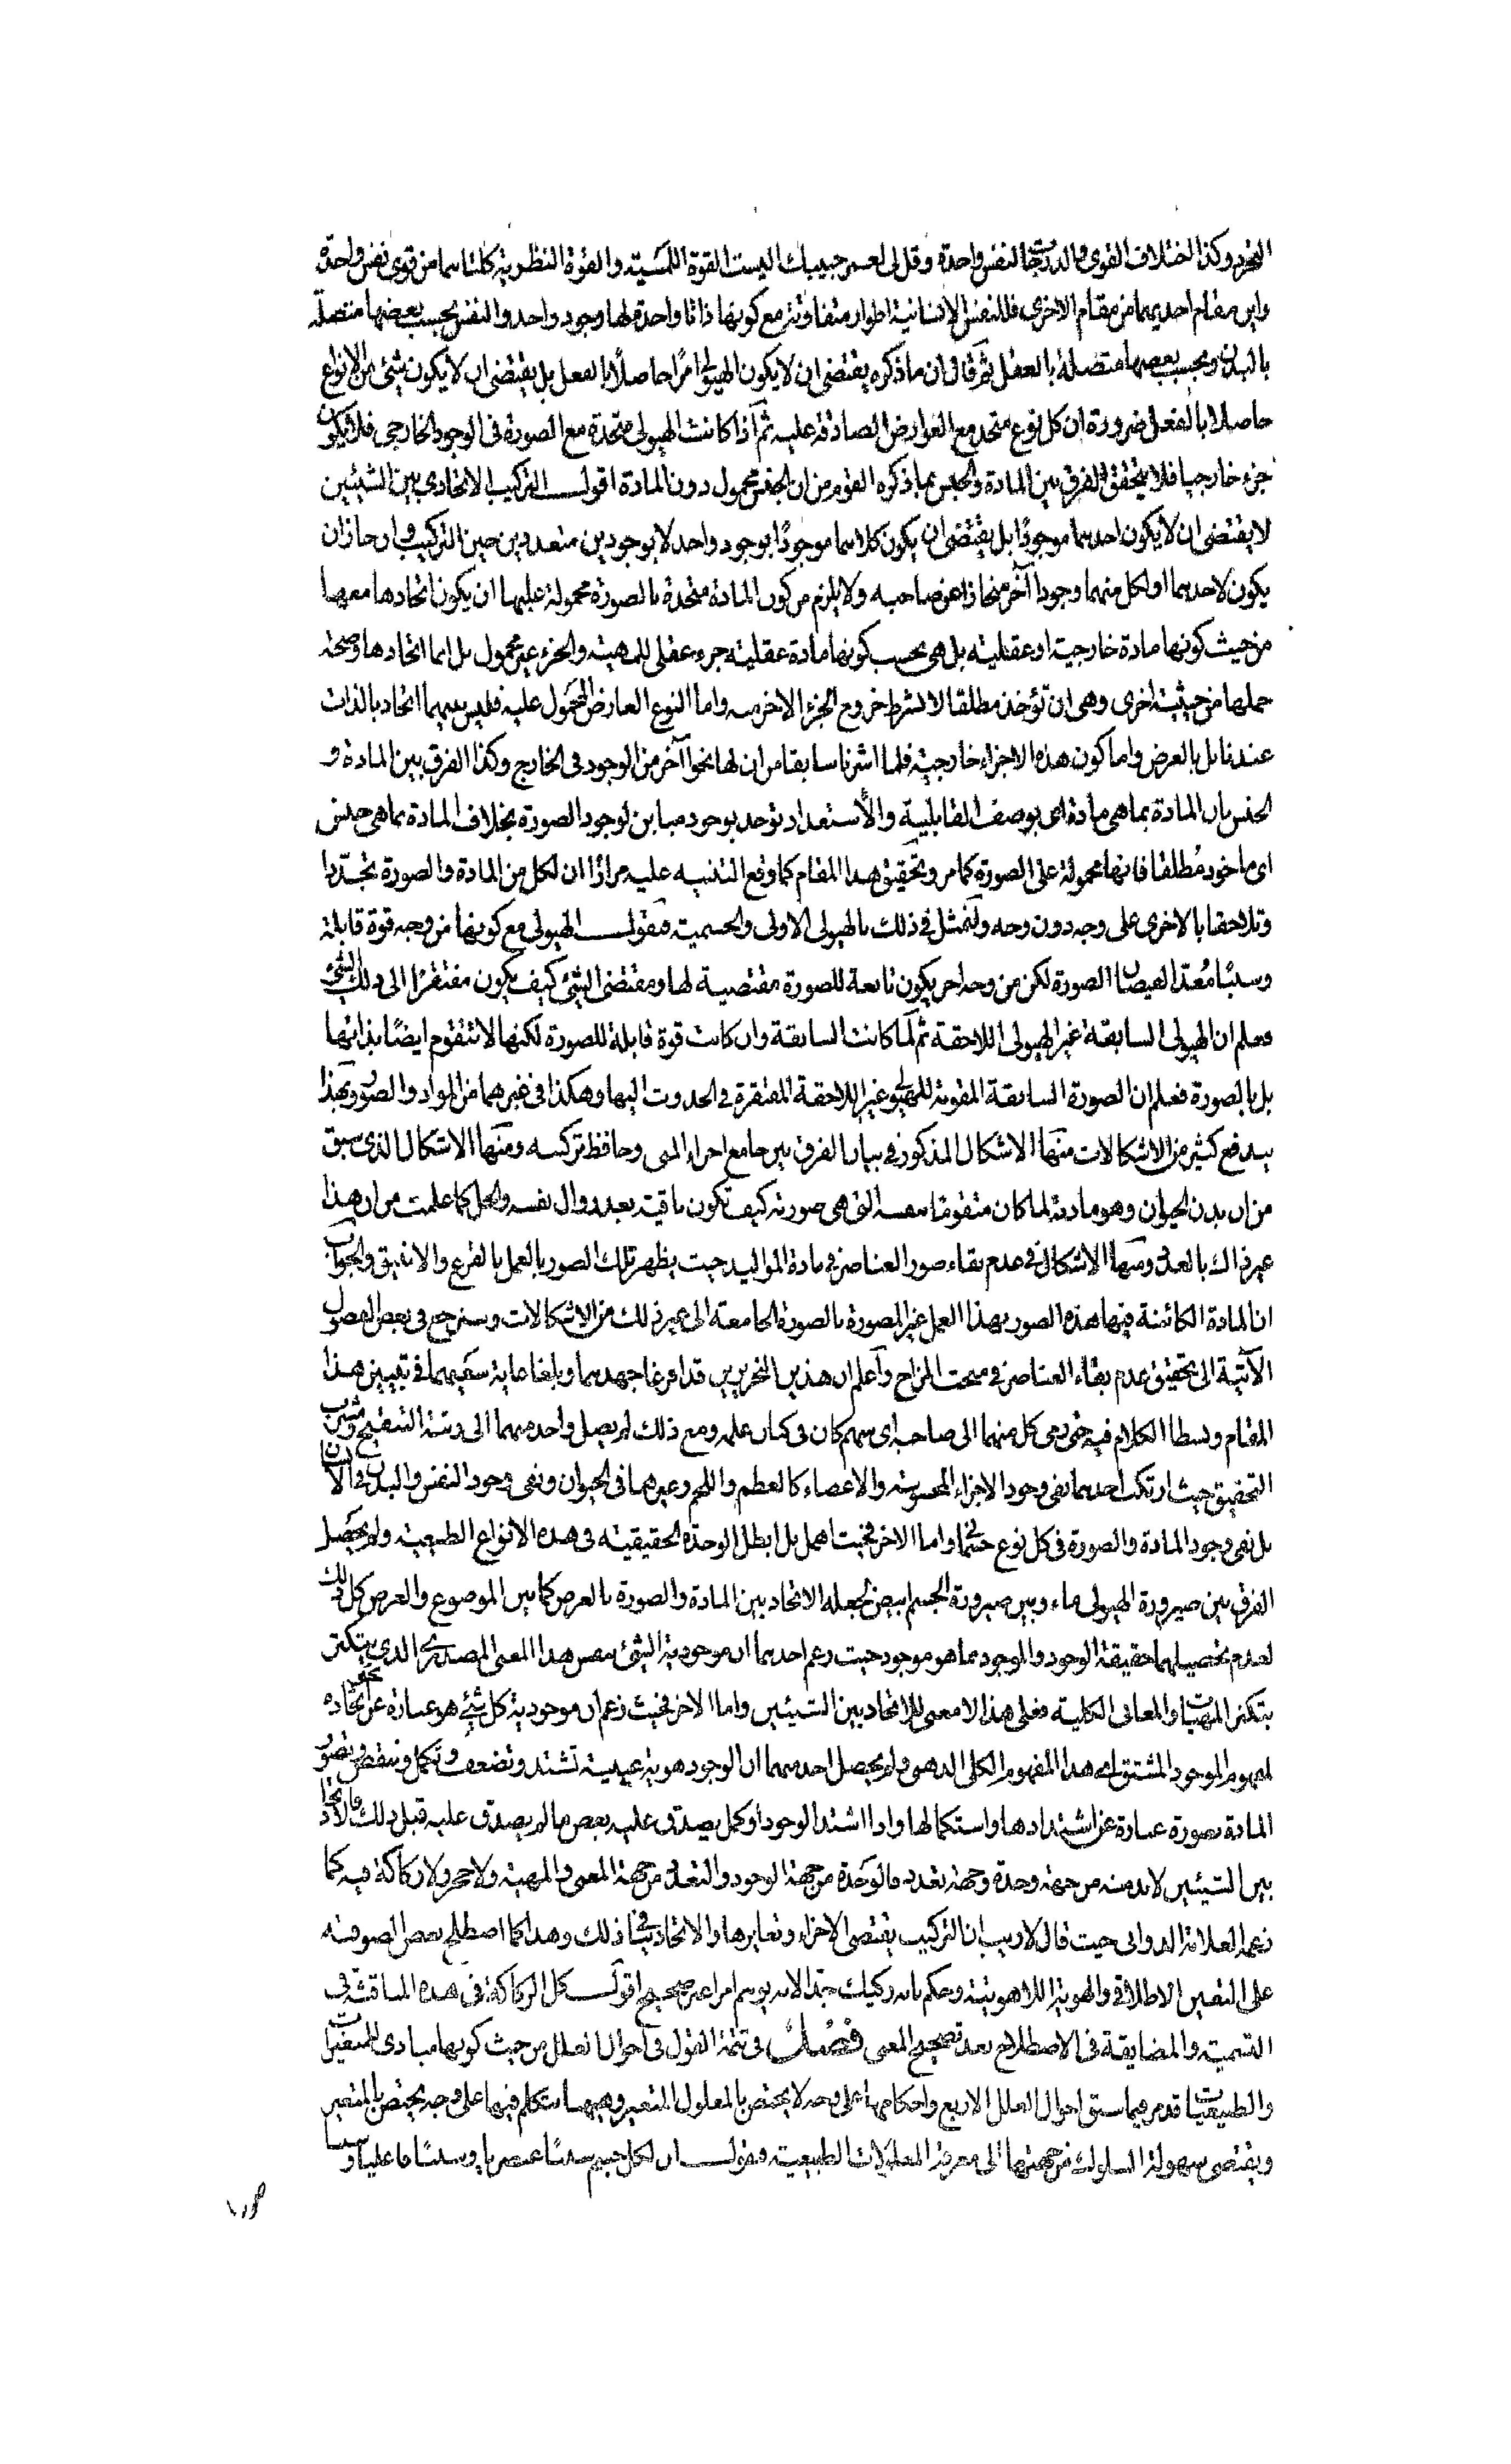 التجرد وكذا اختلاف القوى والدرجات لنفس واحدة وقل لى لعمر حبيبك اليست القوة اللمسية والقوة النظرية كلتاهما من قوى نفس واحدة
واين مقام احديهما من مقام الاخرى فللنفس الإنسانية اطوار متفاوتة مع كونها ذاتا واحدة لها وجود واحد والنفس بحسب بعضها متصلة
بالبدن وبحسب بعضها متصلة بالعقل ثم قال ان ما ذكره يقتضى ان لا يكون الهيولى امرًا حاصلًا بالفعل بل يقتضى ان لا يكون شئ من الانواع
حاصلا بالفعل ضرورة ان كل نوع متحد مع العوارض الصادقة عليه ثم اذا كانت الهيولى متحدة مع الصورة فى الوجود الخارجى فلا يكون
جزء خارجيا فلا يتحقق الفرق بين المادة والجنس بما ذكره القوم من ان الجنس محمول دون المادة اقول التركيب الاتحادى بين الشيئين
لا يقتضى ان لا يكون احدهما موجودًا بل يقتضى ان يكون كلاهما موجودًا بوجود واحد لا بوجودين متعددين حين التركيب وان جاز ان
يكون لاحدهما او لكل منهما وجودا آخر منحازا عن صاحبه ولا يلزم من كون المادة متحدة بالصورة محمولة عليها ان يكون اتحادها معها
من حيث كونها مادة خارجية او عقلية بل هى بحسب كونها مادة عقلية جزء عقلى للمهية والجزء غير محمول بل انما اتحادها وصحة
حملها من حيثية اخرى وهى ان تؤخذ مطلقا لا بشرط خروج الجزء الاخر منه واما النوع العارض المحمول عليه فليس بينهما اتحاد بالذات
عندنا بل بالعرض واما كون هذه الاجزاء خارجية فلما اشرنا سابقا من ان لها نحوا آخر من الوجود فى الخارج وكذا الفرق بين المادة و
الجنس بان المادة بما هى مادة اى بوصف القابلية والأستعداد توجد بوجود مباين لوجود الصورة بخلاف المادة بما هى جنس
اى ماخوذ مُطلقا فانها محمولة على الصورة كما مر وتحقيق هذا المقام كما وقع التنبيه عليه مرارًا ان لكل من المادة والصورة تجدّدا
وتلاحقا بالاخرى على وجه دون وجه ولنمثل فى ذلك بالهيولى الاولى والجسمية فنقول الهيولى مع كونها من وجه قوة قابلة
وسببًا مُعدّا لفيضان الصورة لكن من وجه اخر يكون تابعة للصورة مقتضية لها ومقتضى الشئ كيف يكون مفتقرًا الى ذلك الشئ
فعلم ان الهيولى السابقة غير الهيولى اللاحقة ثم لما كانت السابقة وان كانت قوة قابلة للصورة لكنها لا تتقوم ايضًا بذاتها
بل بالصورة فعلم ان الصورة السابقة المقومة للهيولى غير اللاحقة المفتقرة فى الحدوث اليها وهكذا فى غيرهما من المواد والصور وبهذا
يندفع كثير من الاشكالات منها الاشكال المذكور فى بيان الفرق بين جامع اجزاء المنى وحافظ تركيبه ومنها الاشكال الذى سبق
من ان بدن الحيوان وهو مادته لما كان متقومًا بنفسه التى هى صورته كيف تكون باقية بعد زوال نفسه والحل كما علمت من ان هذا
غير ذاك بالعدد ومنها الاشكال فى عدم بقاء صور العناصر فى مادة المواليد حيث يظهر تلك الصور بالعمل بالقرع والانبيق والجواب
ان المادة الكائنة فيها هذه الصور بهذا العمل غير المصورة بالصورة الجامعة الى غير ذلك من الاشكالات وسنرجع فى بعض الفصول
الآتية الى تحقيق عدم بقاء العناصر فى مبحث المزاج واعلم ان هذين النحريرين قد افرغا جهدهما وبلغا غاية سعيهما فى تبيين هذا
المقام وبسطا الكلام فيه حتى رمى كل منهما الى صاحبه اى سهم كان فى كنانة علمه ومع ذلك لم يصل واحد منهما الى رتبة التنقيح ومشرب
التحقيق حيث ارتكب احدهما نفى وجود الاجزاء المحسوسة والاعضاء كالعظم واللحم وغيرهما فى الحيوان ونفى وجود النفس والبدن فى الانسان
بل نفى وجود المادة والصورة فى كل نوع جسمانى واما الاخر فحيث اهمل بل ابطل الوحدة الحقيقية فى هذه الانواع الطبيعية ولم يحصل
الفرق بين صيرورة الهيولى ماء وبين صيرورة الجسم ابيض لجعله الاتحاد بين المادة والصورة بالعرض كما بين الموضوع والعرض كل ذلك
لعدم تحصيلهما حقيقة الوجود والموجود بما هو موجود حيث زعم احدهما ان موجودية الشئ نفس هذا المعنى المصدرى الذى يتكثر
بتكثر المهيات والمعانى الكلية فعلى هذا لا معنى للاتحاد بين الشيئين واما الاخر فحيث زعم ان موجودية كل شئ هو عبارة عن اتحاده
لمفهوم الموجود المشتق اى هذا المفهوم الكلى الذهنى ولم يحصل احد منهما ان الوجود هوية عينية تشتد وتضعف وتكمل وتنقص وتصور
المادة بصورة عبارة عن اشتدادها واستكمالها واذا اشتد الوجود او كمل يصدق عليه بعض ما لم يصدق عليه قبل ذلك والاتحاد
بين الشيئين لا بد منه من جهة وحدة وجهة تعدد فالوَحدة من جهة الوجود والتعدد من جهة المعنى والمهية ولا حجر ولا ركاكة فيه كما
زعمه العلامة الدوانى حيث قال لا ريب ان التركيب يقتضى الاجزاء وتغايرها والاتحاد ينافى ذلك وهذا كما اصطلح بعض الصوفية
على التعين الاطلاقى والهوية اللاهوتية وحكم بانه ركيك جدّا لانه يوهم امرا غير صحيح اقول كل الركاكة فى هذه المناقشة فى
التسمية والمضايقة فى الاصطلاح بعد تصحيح المعنى فصل فى تتمة القول فى احوال العلل من حيث كونها مبادى للمتغيرات
والطبيعيات قد مر فيما سبق احوال العلل الاربع واحكامها على وجه لا يختص بالمعلول المتغير وههنا نتكلم فيها على وجه يختص بالمتغير
ويقتضى سهولة السلوك من جهتها الى معرفة المعلولات الطبيعية فنقول ان لكل جسم سببًا عنصريا وسببًا فاعليا و